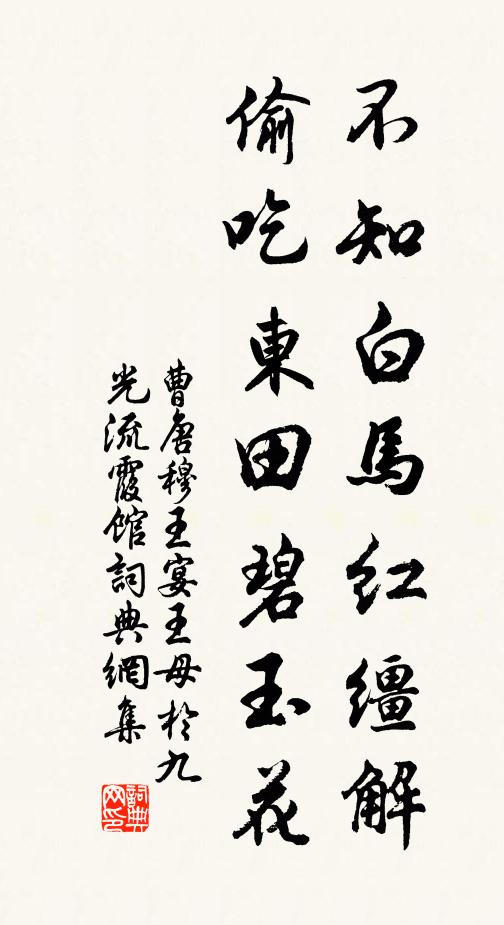 不知白馬紅缰解
偷吃東田碧玉花
曹唐穆王宴王母於九
光流霞館詞典網集
詞典
网印